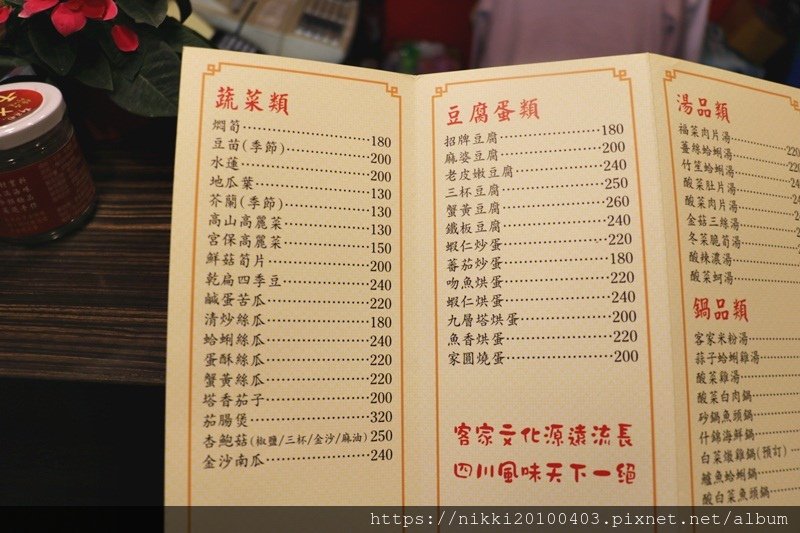 蔬菜類
燜筍 180
豆苗(季節) 200
水蓮 200
地瓜葉 130
芥蘭(季節) 130
高山高麗菜 130
宮保高麗菜 150
鮮菇筍片 200
乾扁四季豆 240
鹹蛋苦瓜 220
清炒絲瓜 180
蛤蜊絲瓜 240
蛋酥絲瓜 220
蟹黃絲瓜 220
塔香茄子 200
茄腸煲 320
杏鮑菇(椒鹽/三杯/金沙/麻油) 250
金沙南瓜 240
豆腐蛋類
招牌豆腐 180
麻婆豆腐 200
老皮嫩豆腐 240
三杯豆腐 250
蟹黃豆腐 260
鐵板豆腐 240
蝦仁炒蛋 220
蕃茄炒蛋 180
吻魚烘蛋 220
蝦仁烘蛋 240
九層塔烘蛋 200
魚香烘蛋 220
家圓燒蛋 200
客家文化源遠流長
四川風味天下一絕
湯品類
福菜肉片湯
薑絲蛤蜊湯 220
竹笙蛤蜊湯
酸菜肚片湯
酸菜肉片湯
金菇三絲湯
冬菜脆筍湯
酸辣濃湯
酸菜蚵湯
鍋品類
客家米粉湯
蒜子蛤蜊雞湯
酸菜雞湯
酸菜白肉鍋
砂鍋魚頭鍋
什錦海鮮鍋
白菜燉雞鍋(預訂)
鱸魚蛤蜊鍋
酸白菜魚頭鍋
https://nikki20100403.pixnet.net/album